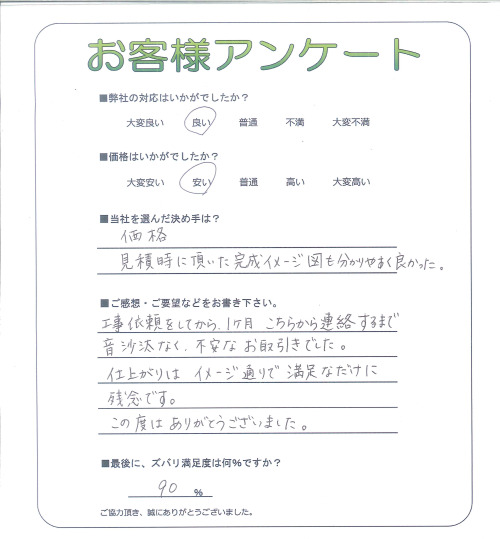 お客様アンケート
■弊社の対応はいかがでしたか？
大変良い 良い 普通 不満 大変不満
■価格はいかがでしたか？
大変安い 安い 普通 高い 大変高い
■当社を選んだ決め手は？
価格
見積時に頂いた完成イメージ図も分かりやすく良かった。
■ご感想・ご要望などをお書き下さい。
工事依頼をしてから、1ヶ月 こちらから連絡するまで
音沙汰なく、不安なお取引きでした。
仕上がりは イメージ通りで 満足なだけに
残念です。
この度は ありがとうございました。
■最後に、ズバリ満足度は何%ですか？
90 %
ご協力頂き、誠にありがとうございました。